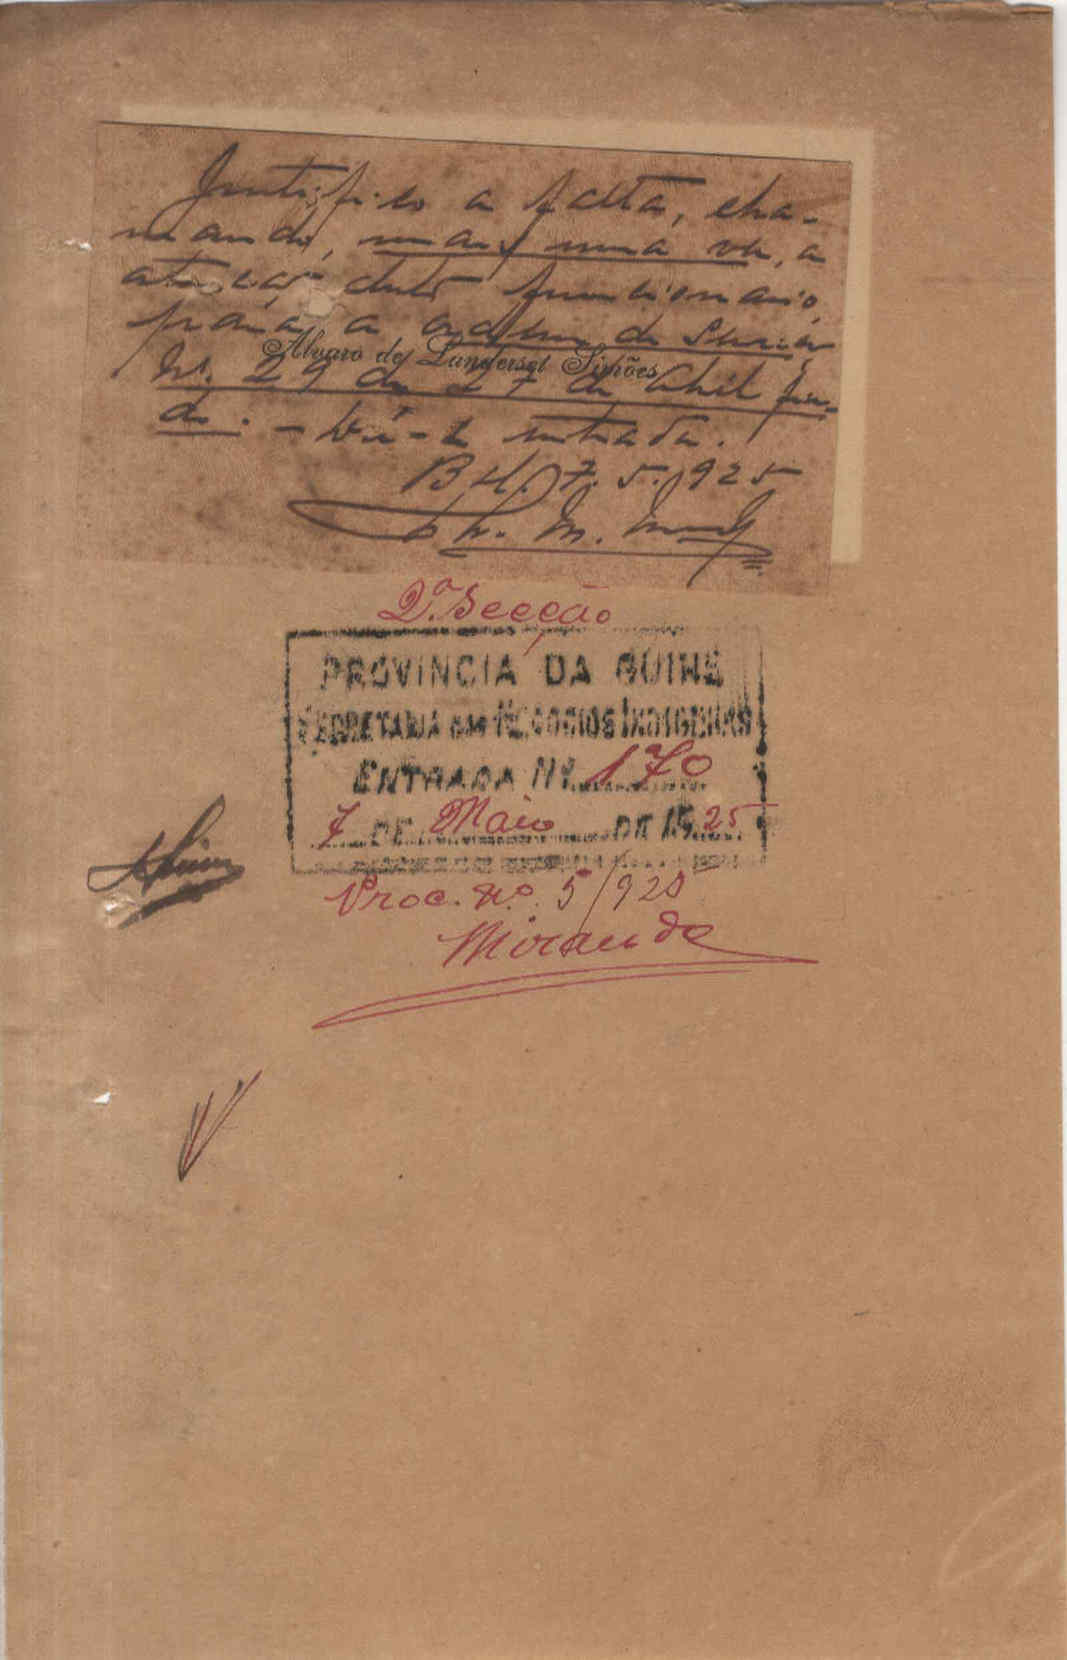 Justifico a falta, cha-
mando, mais uma vez, a
atenção deste funcionario,
para a ordem de Serviço
Nº. 29 de 27 de Abril fin-
do. - Dê-se entrada.
Alvaro de Landerset Simões
7.5.925
2ª. Secção
PROVINCIA DA GUINÉ
SECRETARIA DOS NEGOCIOS INDIGENAS
ENTRADA Nº. 170
7 DE Maio DE 1925
Proc. nº. 5/925
Miranda